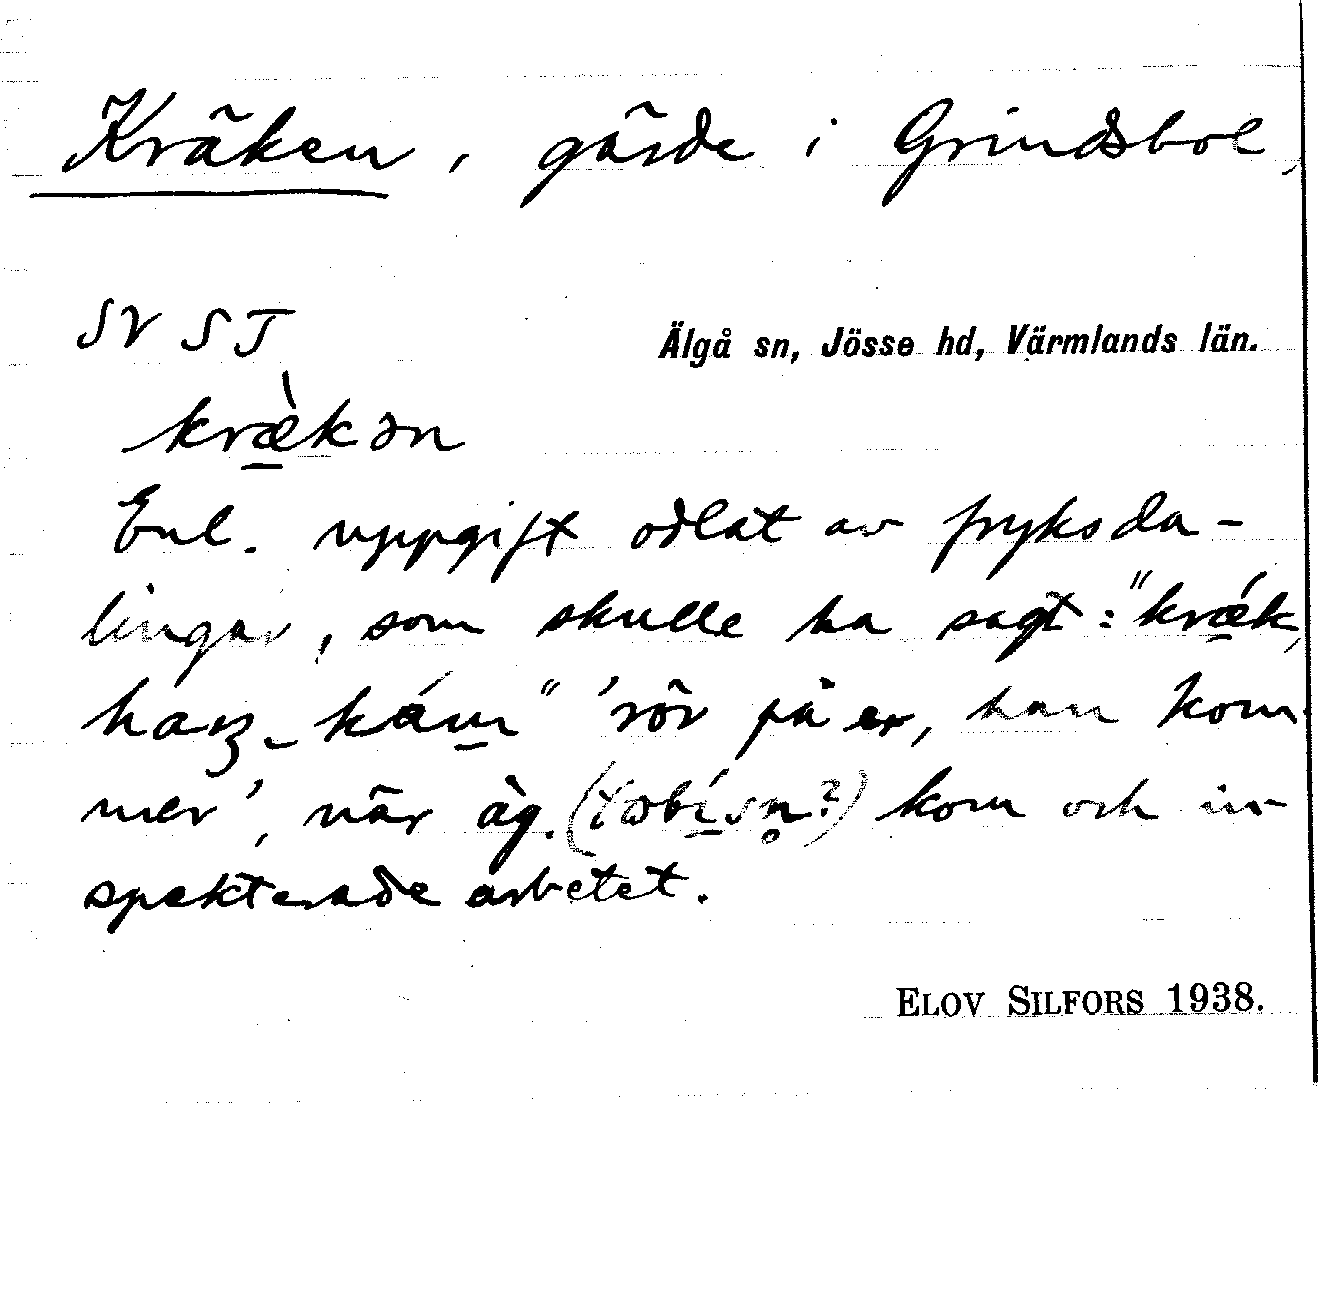 Kräken, gärde i Grindsbol,
SV ST
Älgå sn, Jösse hd, Värmlands län.
kræ̀kən
Enl. uppgift odlat av fryksda-
lingar, som skulle ha sagt: "kræ´k,
kám" 'rör på er, han kom-
mer', när äg. kom och in-
spekterade arbetet.
ELOV SILFORS 1938.